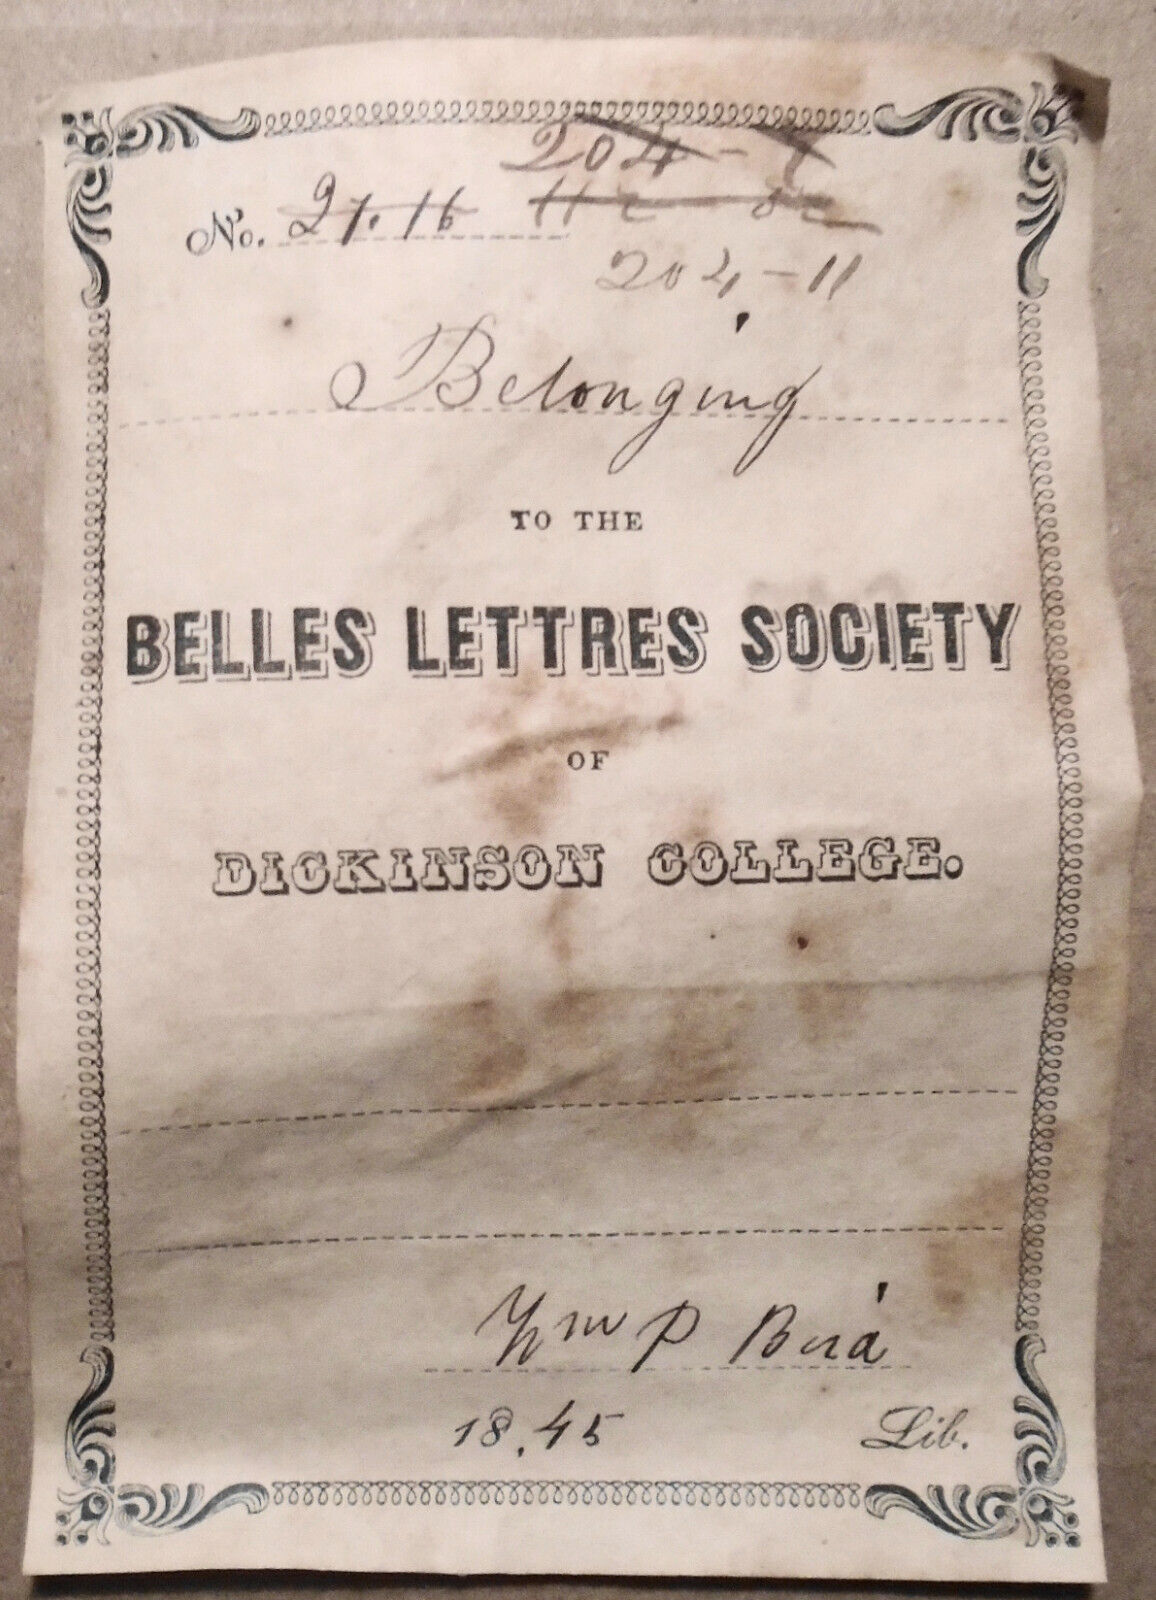 204-
No. 27.16
204-11
Belonging
TO THE
BELLES LETTRES SOCIETY
OF
DICKINSON COLLEGE.
Wm P
18.45 Lib.